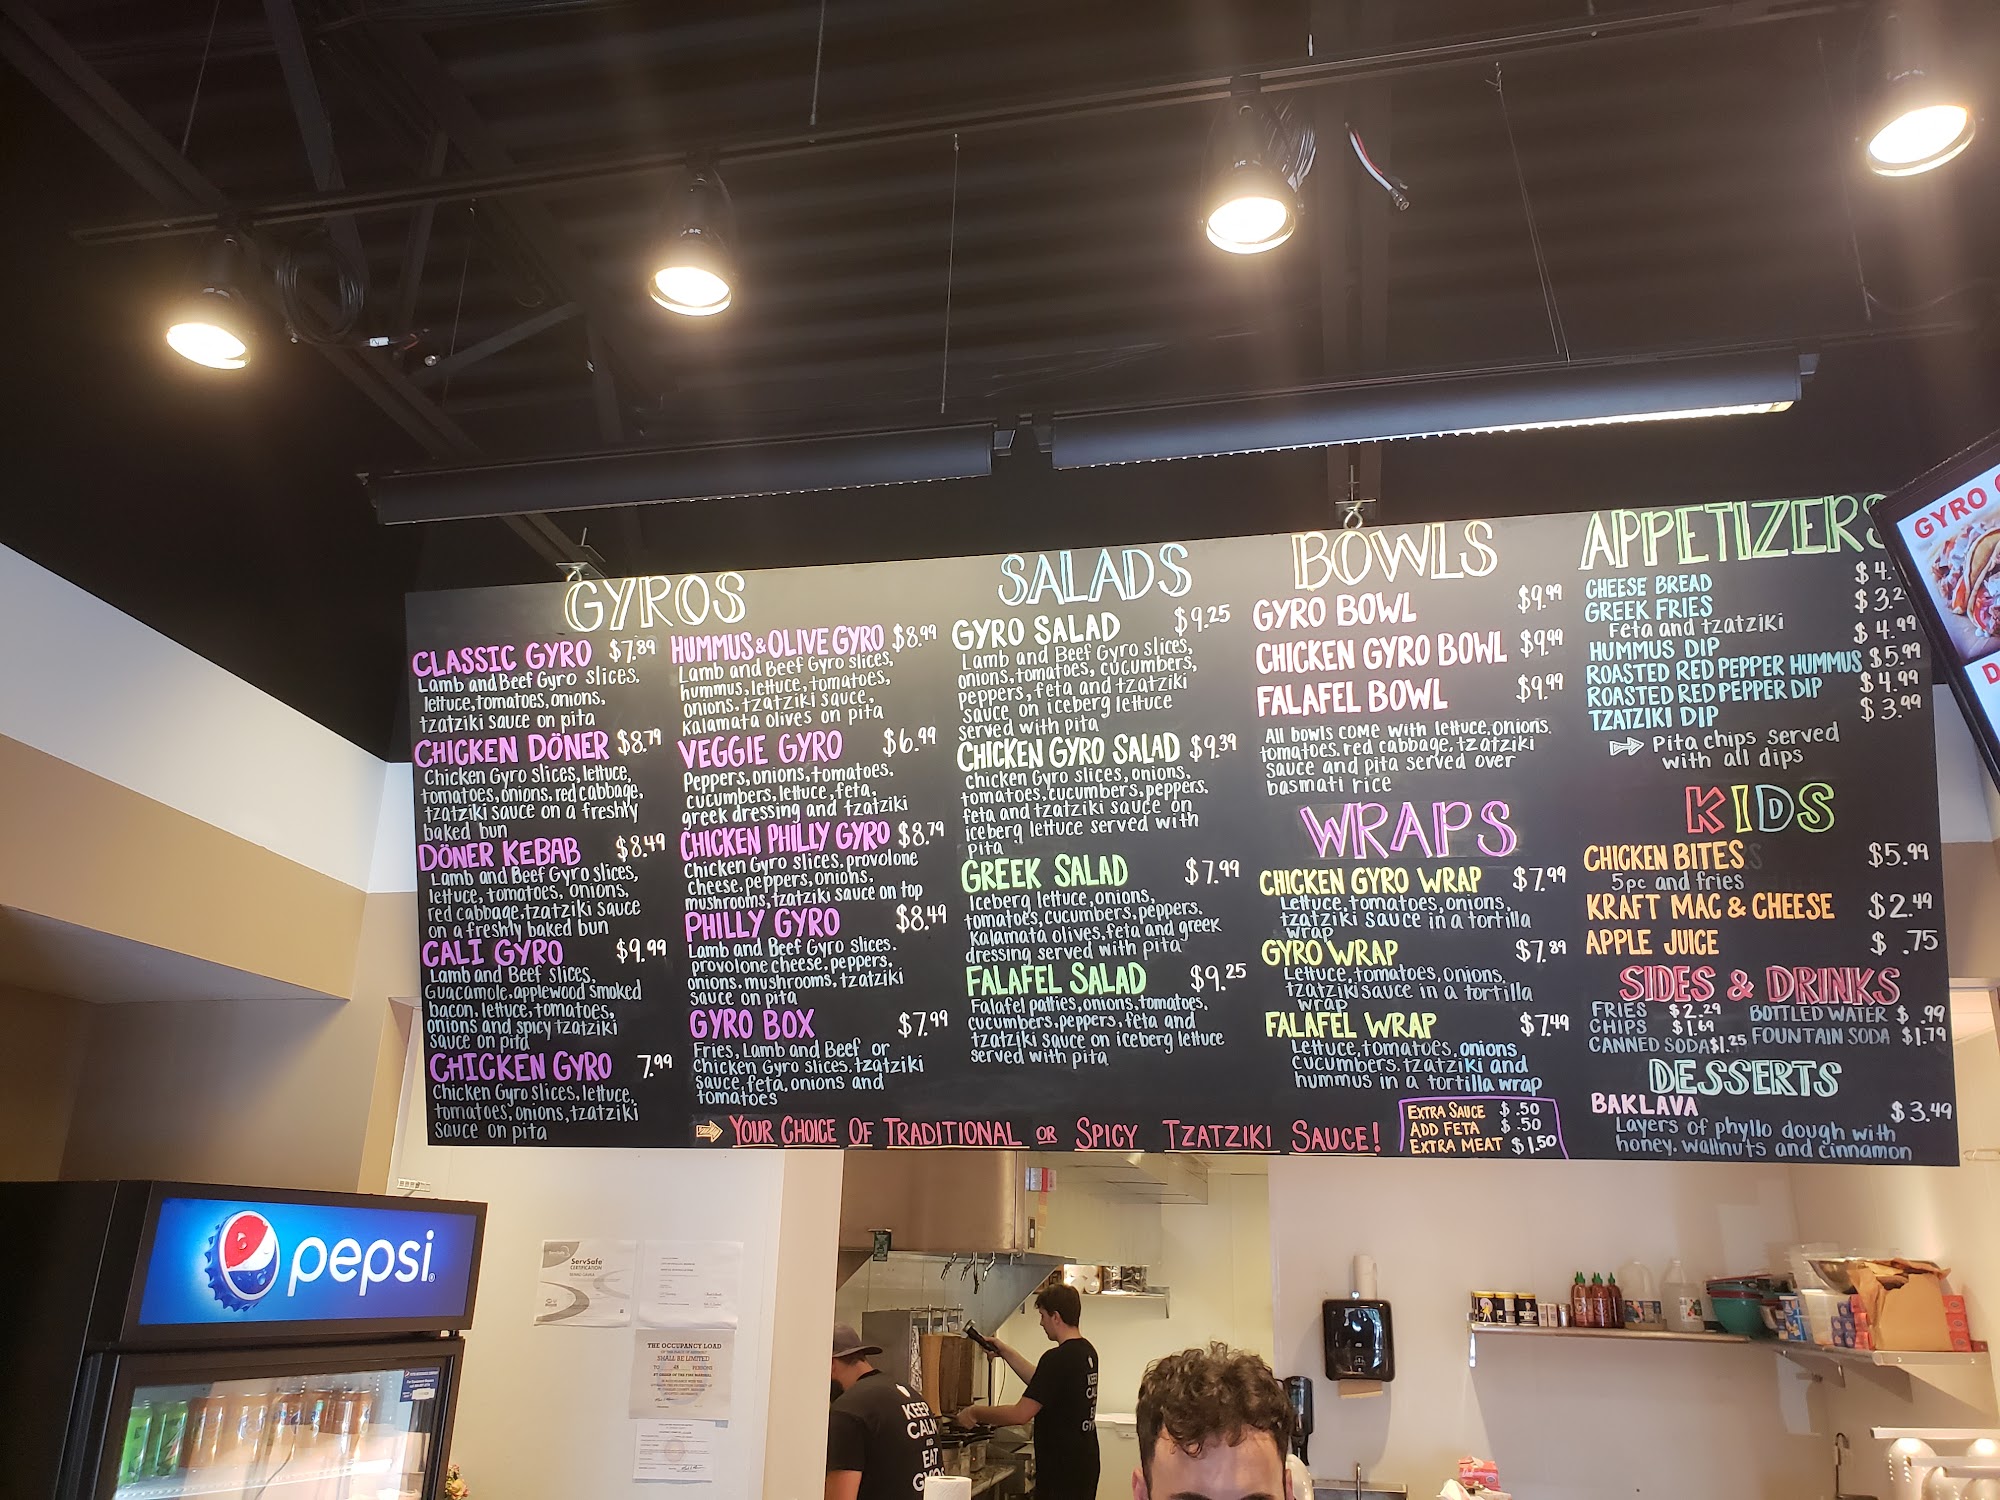 GYROS
CLASSIC GYRO $7.89
Lamb and Beef Gyro slices,
lettuce, tomatoes, onions,
tzatziki sauce on pita
CHICKEN DÖNER $8.79
Chicken Gyro slices, lettuce,
tomatoes, onions, red cabbage,
tzatziki sauce on a freshly
baked bun
DÖNER KEBAB $8.49
Lamb and Beef Gyro slices,
lettuce, tomatoes, onions,
red cabbage, tzatziki sauce
on a freshly baked bun
CALI GYRO $9.99
Lamb and Beef slices,
Guacamole, applewood smoked
bacon, lettuce, tomatoes,
onions and spicy tzatziki
sauce on pita
CHICKEN GYRO 7.99
Chicken Gyro slices, lettuce,
tomatoes, onions, tzatziki
sauce on pita
HUMMUS & OLIVE GYRO $8.99
Lamb and Beef Gyro slices,
hummus, lettuce, tomatoes,
onions, tzatziki sauce,
Kalamata olives on pita
VEGGIE GYRO $6.99
Peppers, onions, tomatoes,
cucumbers, lettuce, feta,
greek dressing and tzatziki
CHICKEN PHILLY GYRO $8.79
Chicken Gyro slices, provolone
cheese, peppers, onions,
mushrooms, tzatziki sauce on top
PHILLY GYRO $8.49
Lamb and Beef Gyro slices,
provolone cheese, peppers,
onions, mushrooms, tzatziki
sauce on pita
GYRO BOX $7.99
Fries, Lamb and Beef or
Chicken Gyro slices, tzatziki
sauce, feta, onions and
tomatoes
SALADS
GYRO SALAD $9.25
Lamb and Beef Gyro slices,
onions, tomatoes, cucumbers,
peppers, feta and tzatziki
sauce on iceberg lettuce
served with pita
CHICKEN GYRO SALAD $9.39
Chicken Gyro slices, onions,
tomatoes, cucumbers, peppers,
feta and tzatziki sauce on
iceberg lettuce served with
pita
GREEK SALAD $7.99
Iceberg lettuce, onions,
tomatoes, cucumbers, peppers,
Kalamata olives, feta and greek
dressing served with pita
FALAFEL SALAD $9.25
Falafel patties, onions, tomatoes,
cucumbers, peppers, feta and
tzatziki sauce on iceberg lettuce
served with pita
BOWLS
GYRO BOWL $9.99
CHICKEN GYRO BOWL $9.99
FALAFEL BOWL $9.99
All bowls come with lettuce, onions,
tomatoes, red cabbage, tzatziki
sauce and pita served over
basmati rice
WRAPS
CHICKEN GYRO WRAP $7.99
Lettuce, tomatoes, onions,
tzatziki sauce in a tortilla
wrap
GYRO WRAP $7.89
Lettuce, tomatoes, onions,
tzatziki sauce in a tortilla
wrap
FALAFEL WRAP $7.49
Lettuce, tomatoes, onions
cucumbers, tzatziki and
hummus in a tortilla wrap
APPETIZERS
CHEESE BREAD
GREEK FRIES
Feta and tzatziki
HUMMUS DIP $4.99
ROASTED RED PEPPER HUMMUS $5.99
ROASTED RED PEPPER DIP $4.99
TZATZIKI DIP $3.99
Pita chips served
with all dips
KIDS
CHICKEN BITES $5.99
5pc and fries
KRAFT MAC & CHEESE $2.49
APPLE JUICE $ .75
SIDES & DRINKS
FRIES $2.29 BOTTLED WATER $ .99
CHIPS $1.69 FOUNTAIN SODA $1.79
CANNED SODA $1.25
DESSERTS
BAKLAVA $3.49
Layers of phyllo dough with
honey, wallnuts and cinnamon
YOUR CHOICE OF TRADITIONAL OR SPICY TZATZIKI SAUCE!
EXTRA SAUCE $ .50
ADD FETA $ .50
EXTRA MEAT $1.50
GYRO
pepsi
ServSafe
CERTIFICATION
THE OCCUPANCY LOAD
SHALL BE LIMITED
KEEP
CALM
AND
EAT
GYROS